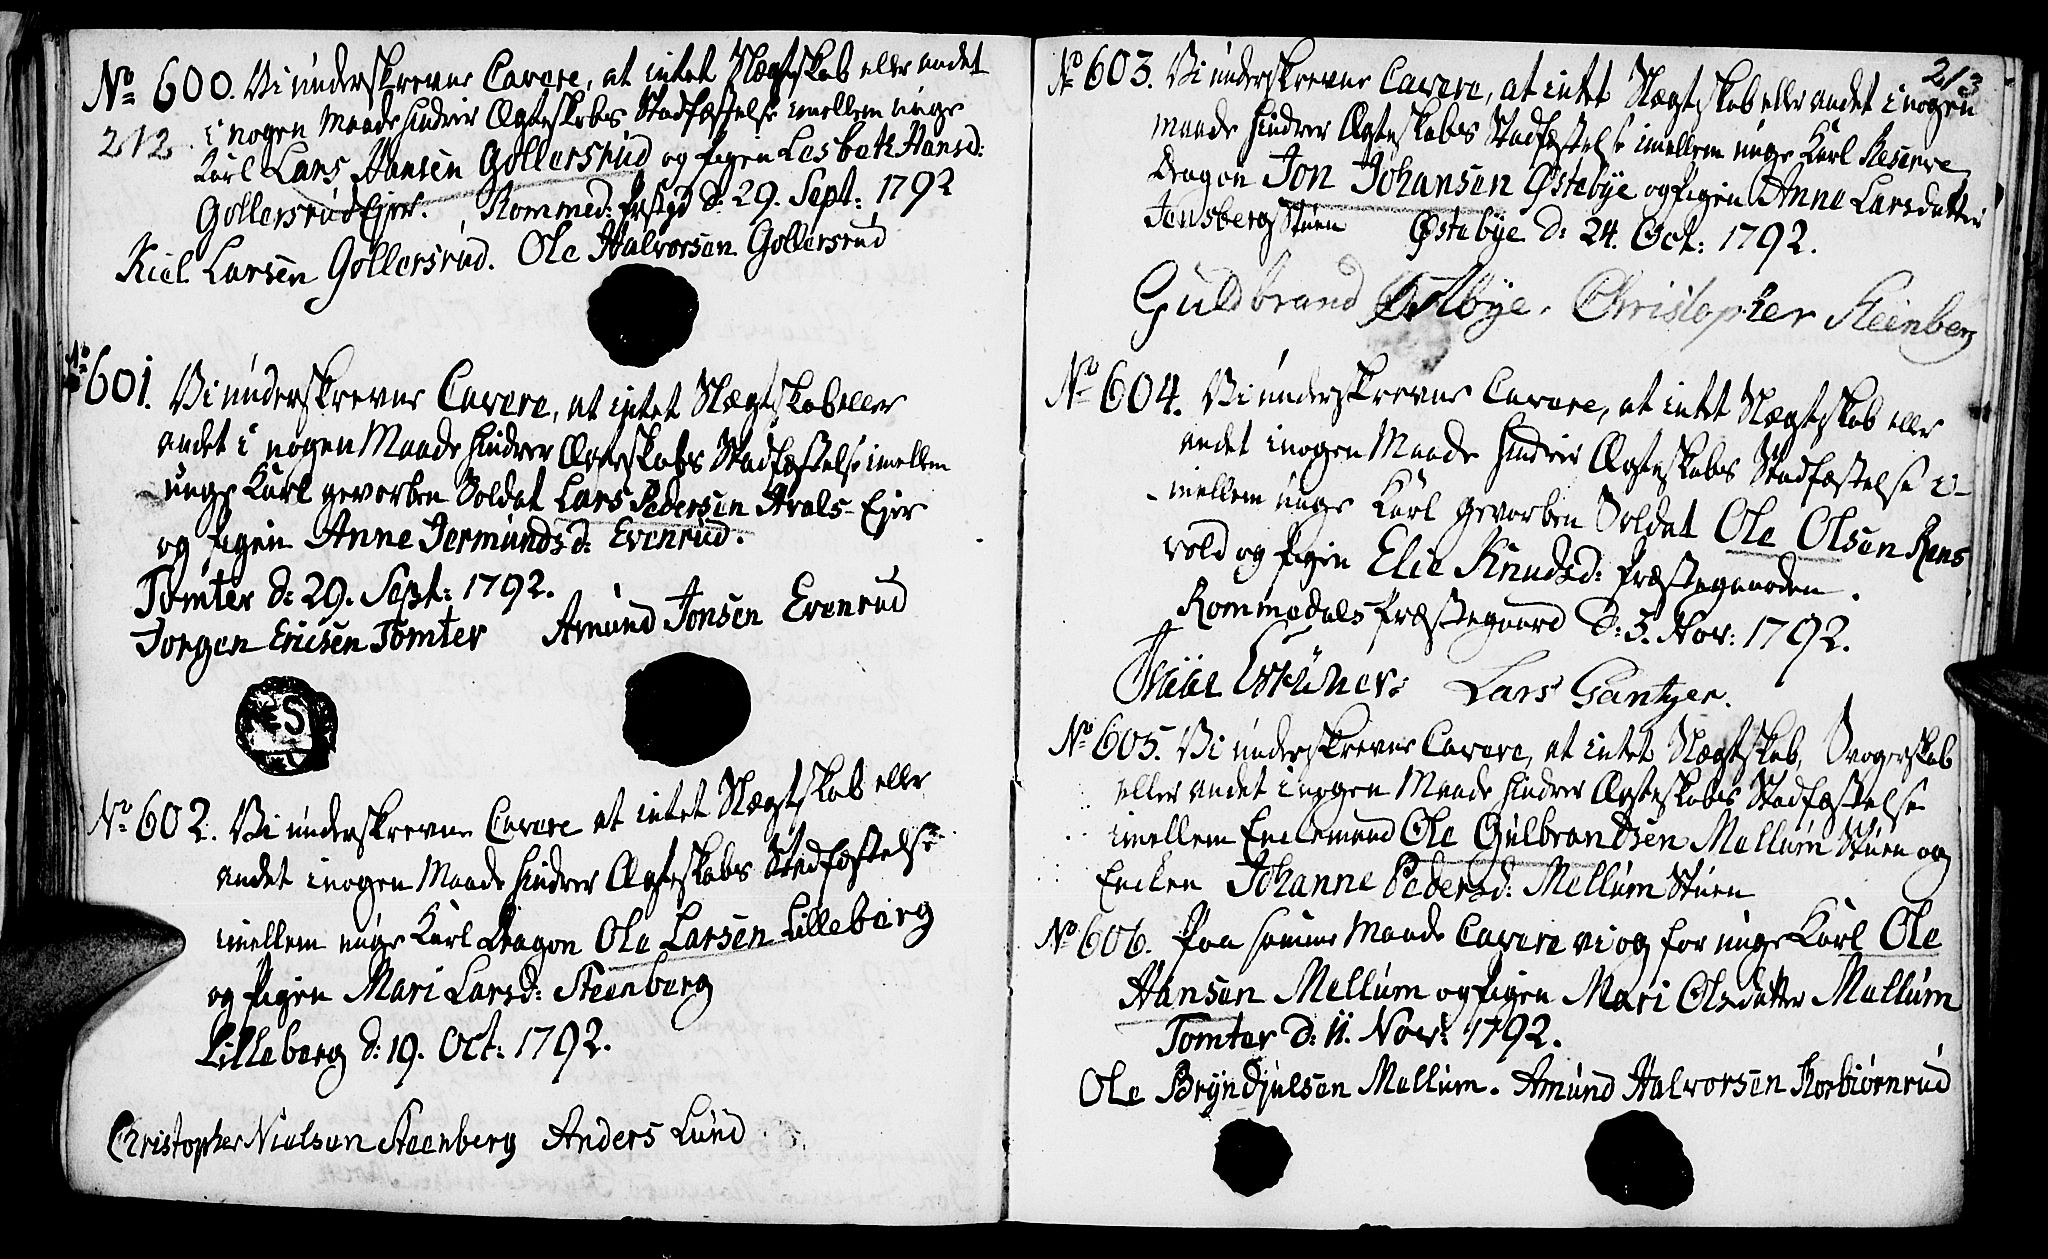 No 600. Vi underskrevne Cavere, at intet Slægtskab eller andet
212. i nogen Maade hindrer Ægteskabs Stadfæstelse imellem unge
Karl Lars Hansen Gollersrud og Pigen Lesbeth Hansd:
Gollersrud Ejer. Rommed: Præstgd d: 29. Sept: 1792
Kiel Larsen Gollersrud. Ole Halvorsen Gollersrud
No 601. Vi underskrevne Cavere, at intet Slægtskab eller
andet i nogen Maade hindrer Ægteskabs Stadfæstelse imellem
unge Karl gevorben Soldat Lars Pedersen Arals-Ejer
og Pigen Anne Jermundsd: Evenrud.
Tomter d: 29. Sept: 1792.
Jorgen Ericsen Tomter Amund Jonsen Evenrud
No 602. Vi underskrevne Cavere at intet Slægtskab eller
andet i nogen Maade hindrer Ægteskabs Stadfæstelse
imellem unge Karl Dragon Ole Larsen Lilleberg
og Pigen Mari Larsd: Steenberg
Lilleberg d: 19. Oct: 1792.
Christopher Nielsen Steenberg Anders Lund
213
No 603. Vi underskrevne Cavere, at intet Slægtskab eller andet i nogen
Maade hindrer Ægteskabs Stadfæstelse imellem unge Karl Reserve
Dragon Jon Johansen Østebye og Pigen Anne Larsdatter
Jensberg Stuen Østebye d: 24. Oct: 1792.
Guldbrand Østbye. Christopher Steinberg
No 604. Vi underskrevne Cavere, at intet Slægtskab eller
andet i nogen Maade hindrer Ægteskabs Stadfæstelse i-
mellem unge Karl gevorben Soldat Ole Olsen Rens
vold og Pigen Elie Knudsd: Præstegaarden.
Rommedals Præstegaard d: 3. Nov: 1792.
Lars Gantzer.
No 605. Vi underskrevne Cavere, at intet Slægtskab, Svogerskab
eller andet i nogen Maade hindrer Ægteskabs Stadfæstelse
imellem Enckemand Ole Gulbrandsen Mellum Stuen og
Encken Johanne Pedersd: Mellum Stuen
No 606. Paa samme Maade Cavere vi og for unge Karl Ole
Hansen Mellum og Pigen Mari Olsdatter Mellum
Tomter d: 11. Nov: 1792.
Ole Bryndjulsen Mellum. Amund Halvorsen Korbiørnrud